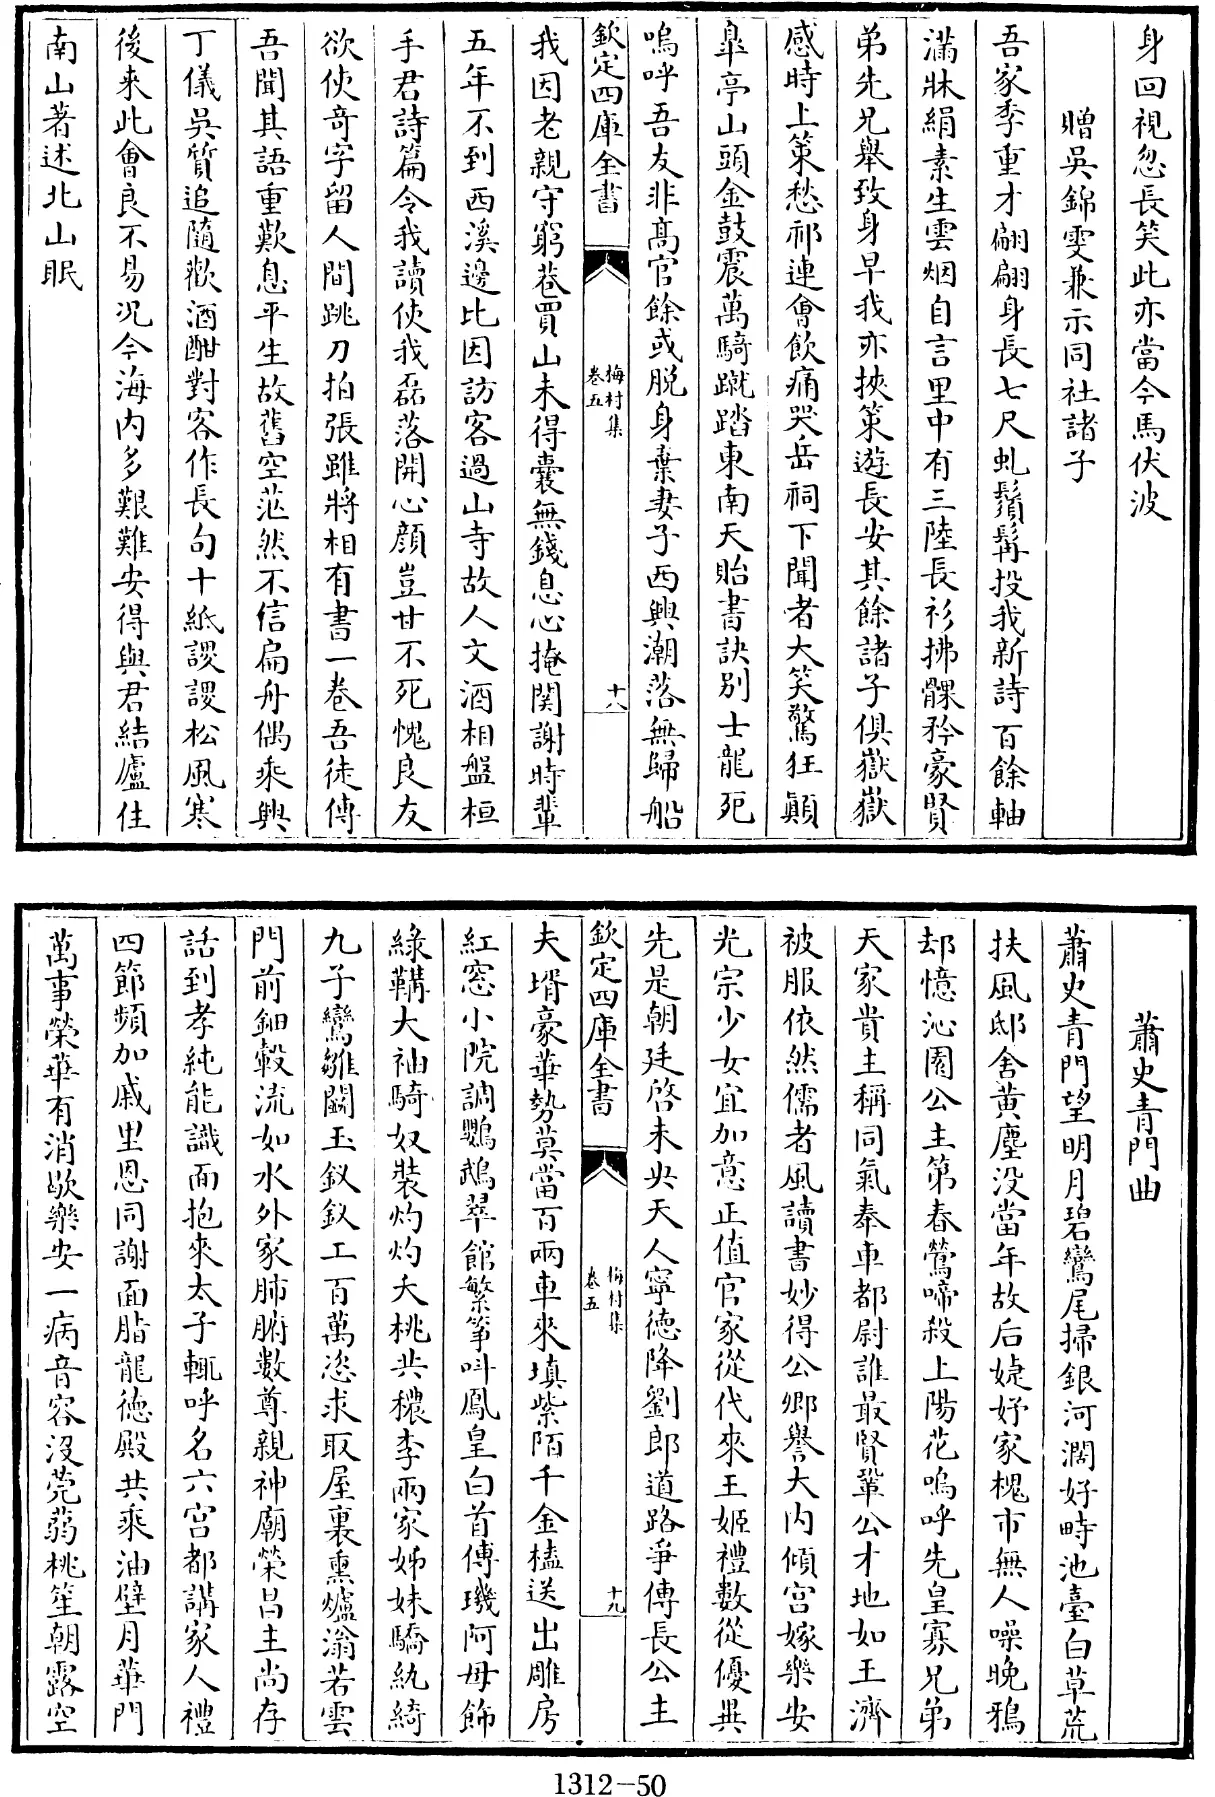 身回視忽長笑此亦當今馬伏波
贈吳錦雯兼示同社諸子
吾家季重才翩翩身長七尺虬鬚髯投我新詩百餘軸
滿牀絹素生雲烟自言里中有三陸長衫拂髁矜豪賢
弟先兄舉致身早我亦挾策遊長安其餘諸子俱嶽嶽
感時上策愁祁連會飲痛哭岳祠下聞者大笑驚狂顛
臯亭山頭金鼓震萬騎蹴踏東南天貽書訣别士龍死
嗚呼吾友非髙官餘或脱身棄妻子西興潮落無歸船
欽定四庫全書
梅村集
卷五
十八
我因老親守窮巷買山未得囊無錢息心掩関謝時輩
五年不到西溪邊比因訪客過山寺故人文酒相盤桓
手君詩篇令我讀使我磊落開心顔豈甘不死愧良友
欲使竒字留人間跳刀拍張雖將相有書一巻吾徒傳
吾聞其語重歎息平生故舊空茫然不信扁舟偶乘興
丁儀吳質追隨歡酒酣對客作長句十紙謖謖松風寒
後來此會良不易况今海内多艱難安得與君結廬住
南山著述北山眠
蕭史青門曲
蕭史青門望明月碧鸞尾掃銀河濶好畤池臺白草荒
扶風邸舍黄塵没當年故后婕妤家槐市無人噪晚鴉
却憶沁園公主第春鶯啼殺上陽花嗚呼先皇寡兄弟
天家貴主稱同氣奉車都尉誰最賢鞏公才地如王濟
被服依然儒者風讀書妙得公卿譽大内傾宫嫁樂安
光宗少女宜加意正值官家從代來王姬禮數從優異
先是朝廷啓未央天人寧德降劉郎道路爭傳長公主
欽定四庫全書
梅村集
卷五
十九
夫壻豪華勢莫當百兩車來填紫陌千金榼送出雕房
紅窓小院調鸚鵡翠館繁箏叫鳳皇白首傅璣阿母飾
緑鞲大袖騎奴裝灼灼夭桃共穠李兩家姊妹驕紈綺
九子鸞雛鬬玉釵釵工百萬恣求取屋裏熏爐滃若雲
門前鈿轂流如水外家肺腑數尊親神廟榮昌主尚存
話到孝純能識面抱來太子輒呼名六宫都講家人禮
四節頻加戚里恩同謝面脂龍德殿共乘油壁月華門
萬事榮華有消歇樂安一病音容没莞蒻桃笙朝露空
1312－50